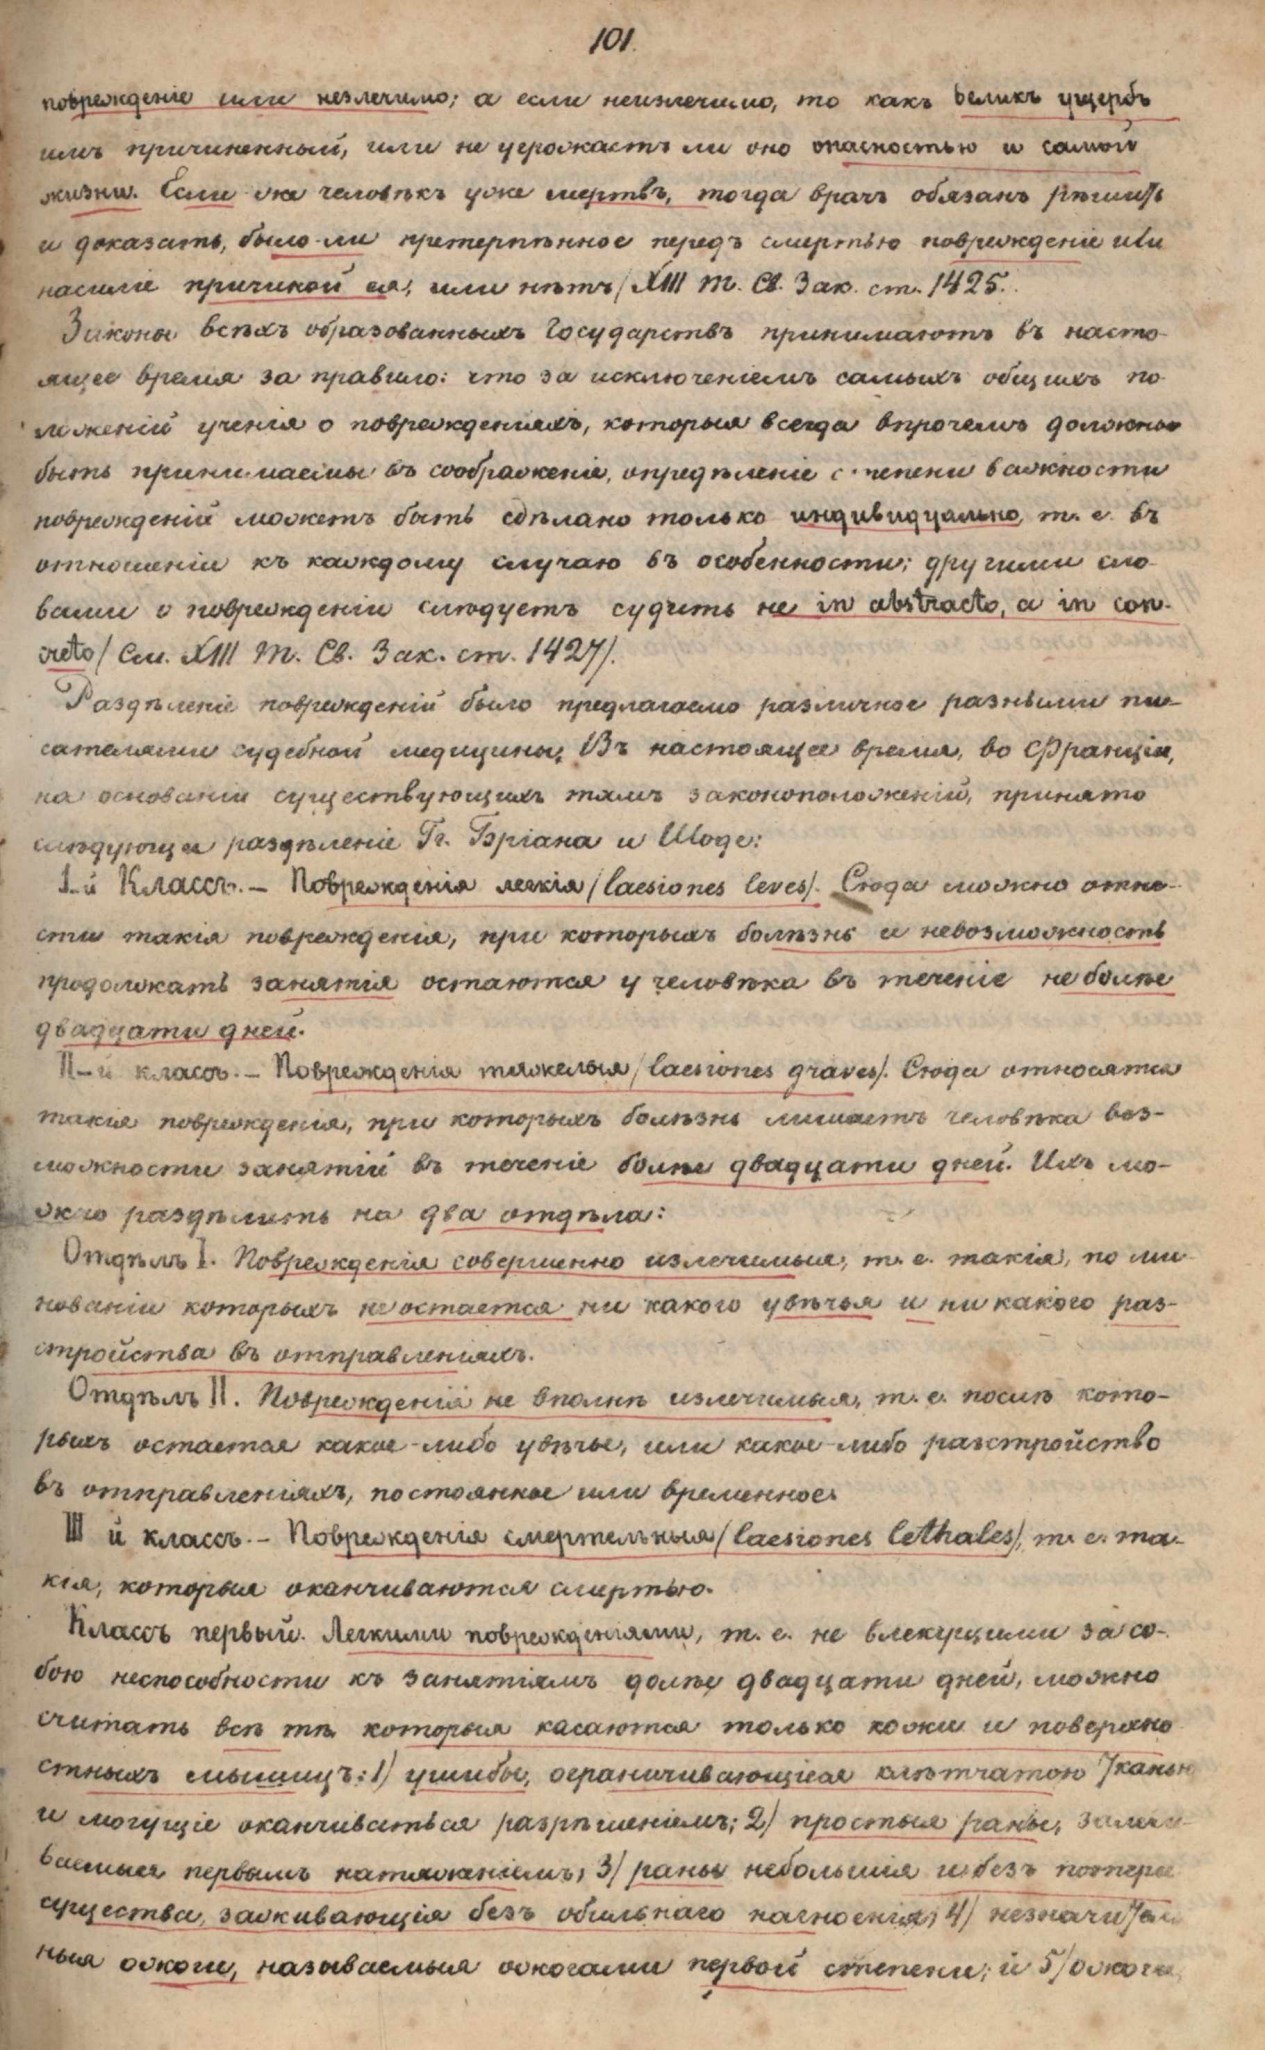 101.
поврежденіе или незлечимо; а если неизлечимо, то какъ великъ ущербъ
имъ причиненный, или не угрожаетъ ли оно опасностью и самой
жизни. Если же человѣкъ уже мертвъ, тогда врачъ обязанъ рѣшить
и доказать, было-ли претерпѣнное передъ смертью поврежденіе или
насиліе причиной ея, или нѣтъ /XIII т. Св. Зак. ст. 1425.
Законы всѣхъ образованныхъ Государствъ принимаютъ въ насто-
ящее время за правило: что за исключеніемъ самыхъ общихъ по-
ложеній ученія о поврежденіяхъ, которыя всегда впрочемъ должны
быть принимаемы въ соображеніе, опредѣленіе степени важности
поврежденій можетъ быть сдѣлано только индивидуально, т. е. въ
отношеніи къ каждому случаю въ особенности; другими сло-
вами о поврежденіи слѣдуетъ судить не in abstracto, а in con-
creto /См. XIII т. Св. Зак. ст. 1427/.
Раздѣленіе поврежденій было предлагаемо различное разными пи-
сателями судебной медицины. Въ настоящее время, во Франціи,
на основаніи существующихъ тамъ законоположеній, принято
слѣдующее раздѣленіе Гг. Бріана и Шоде:
I-й Классъ. – Поврежденія легкія /laesiones leves/. Сюда можно отне-
сти такія поврежденія, при которыхъ болѣзнь и невозможность
продолжать занятія остаются у человѣка въ теченіе не болѣе
двадцати дней.
II-й классъ. – Поврежденія тяжелыя /laesiones graves/. Сюда относятся
такія поврежденія, при которыхъ болѣзнь лишаетъ человѣка воз-
можности занятій въ теченіе болѣе двадцати дней. Ихъ мо-
жно раздѣлить на два отдѣла:
Отдѣлъ I. Поврежденія совершенно излечимыя, т. е. такія, по ми-
нованіи которыхъ не остается ни какого увѣчья и ни какого раз-
стройства въ отправленіяхъ.
Отдѣлъ II. Поврежденія не вполнѣ излечимыя, т. е. послѣ кото-
рыхъ остается какое-либо увѣчье, или какое-либо разстройство
въ отправленіяхъ, постоянное или временное.
III й классъ. – Поврежденія смертельныя /laesiones lethales/, т. е. та-
кія, которыя оканчиваются смертью.
Классъ первый. Легкими поврежденіями, т. е. не влекущими за со-
бою неспособности къ занятіямъ долѣе двадцати дней, можно
считать всѣ тѣ которыя касаются только кожи и поверхно
стныхъ мышицъ: 1/ ушибы, ограничивающіеся клѣтчатою тканью
и могущіе оканчиваться разрѣшеніемъ; 2/ простыя раны, залечи-
ваемыя первымъ натяженіемъ; 3/ раны небольшія и безъ потери
существа, заживающія безъ обильнаго нагноенія; 4/ незначитель
ныя ожоги, называемыя ожогами первой степени; и 5/ ожоги